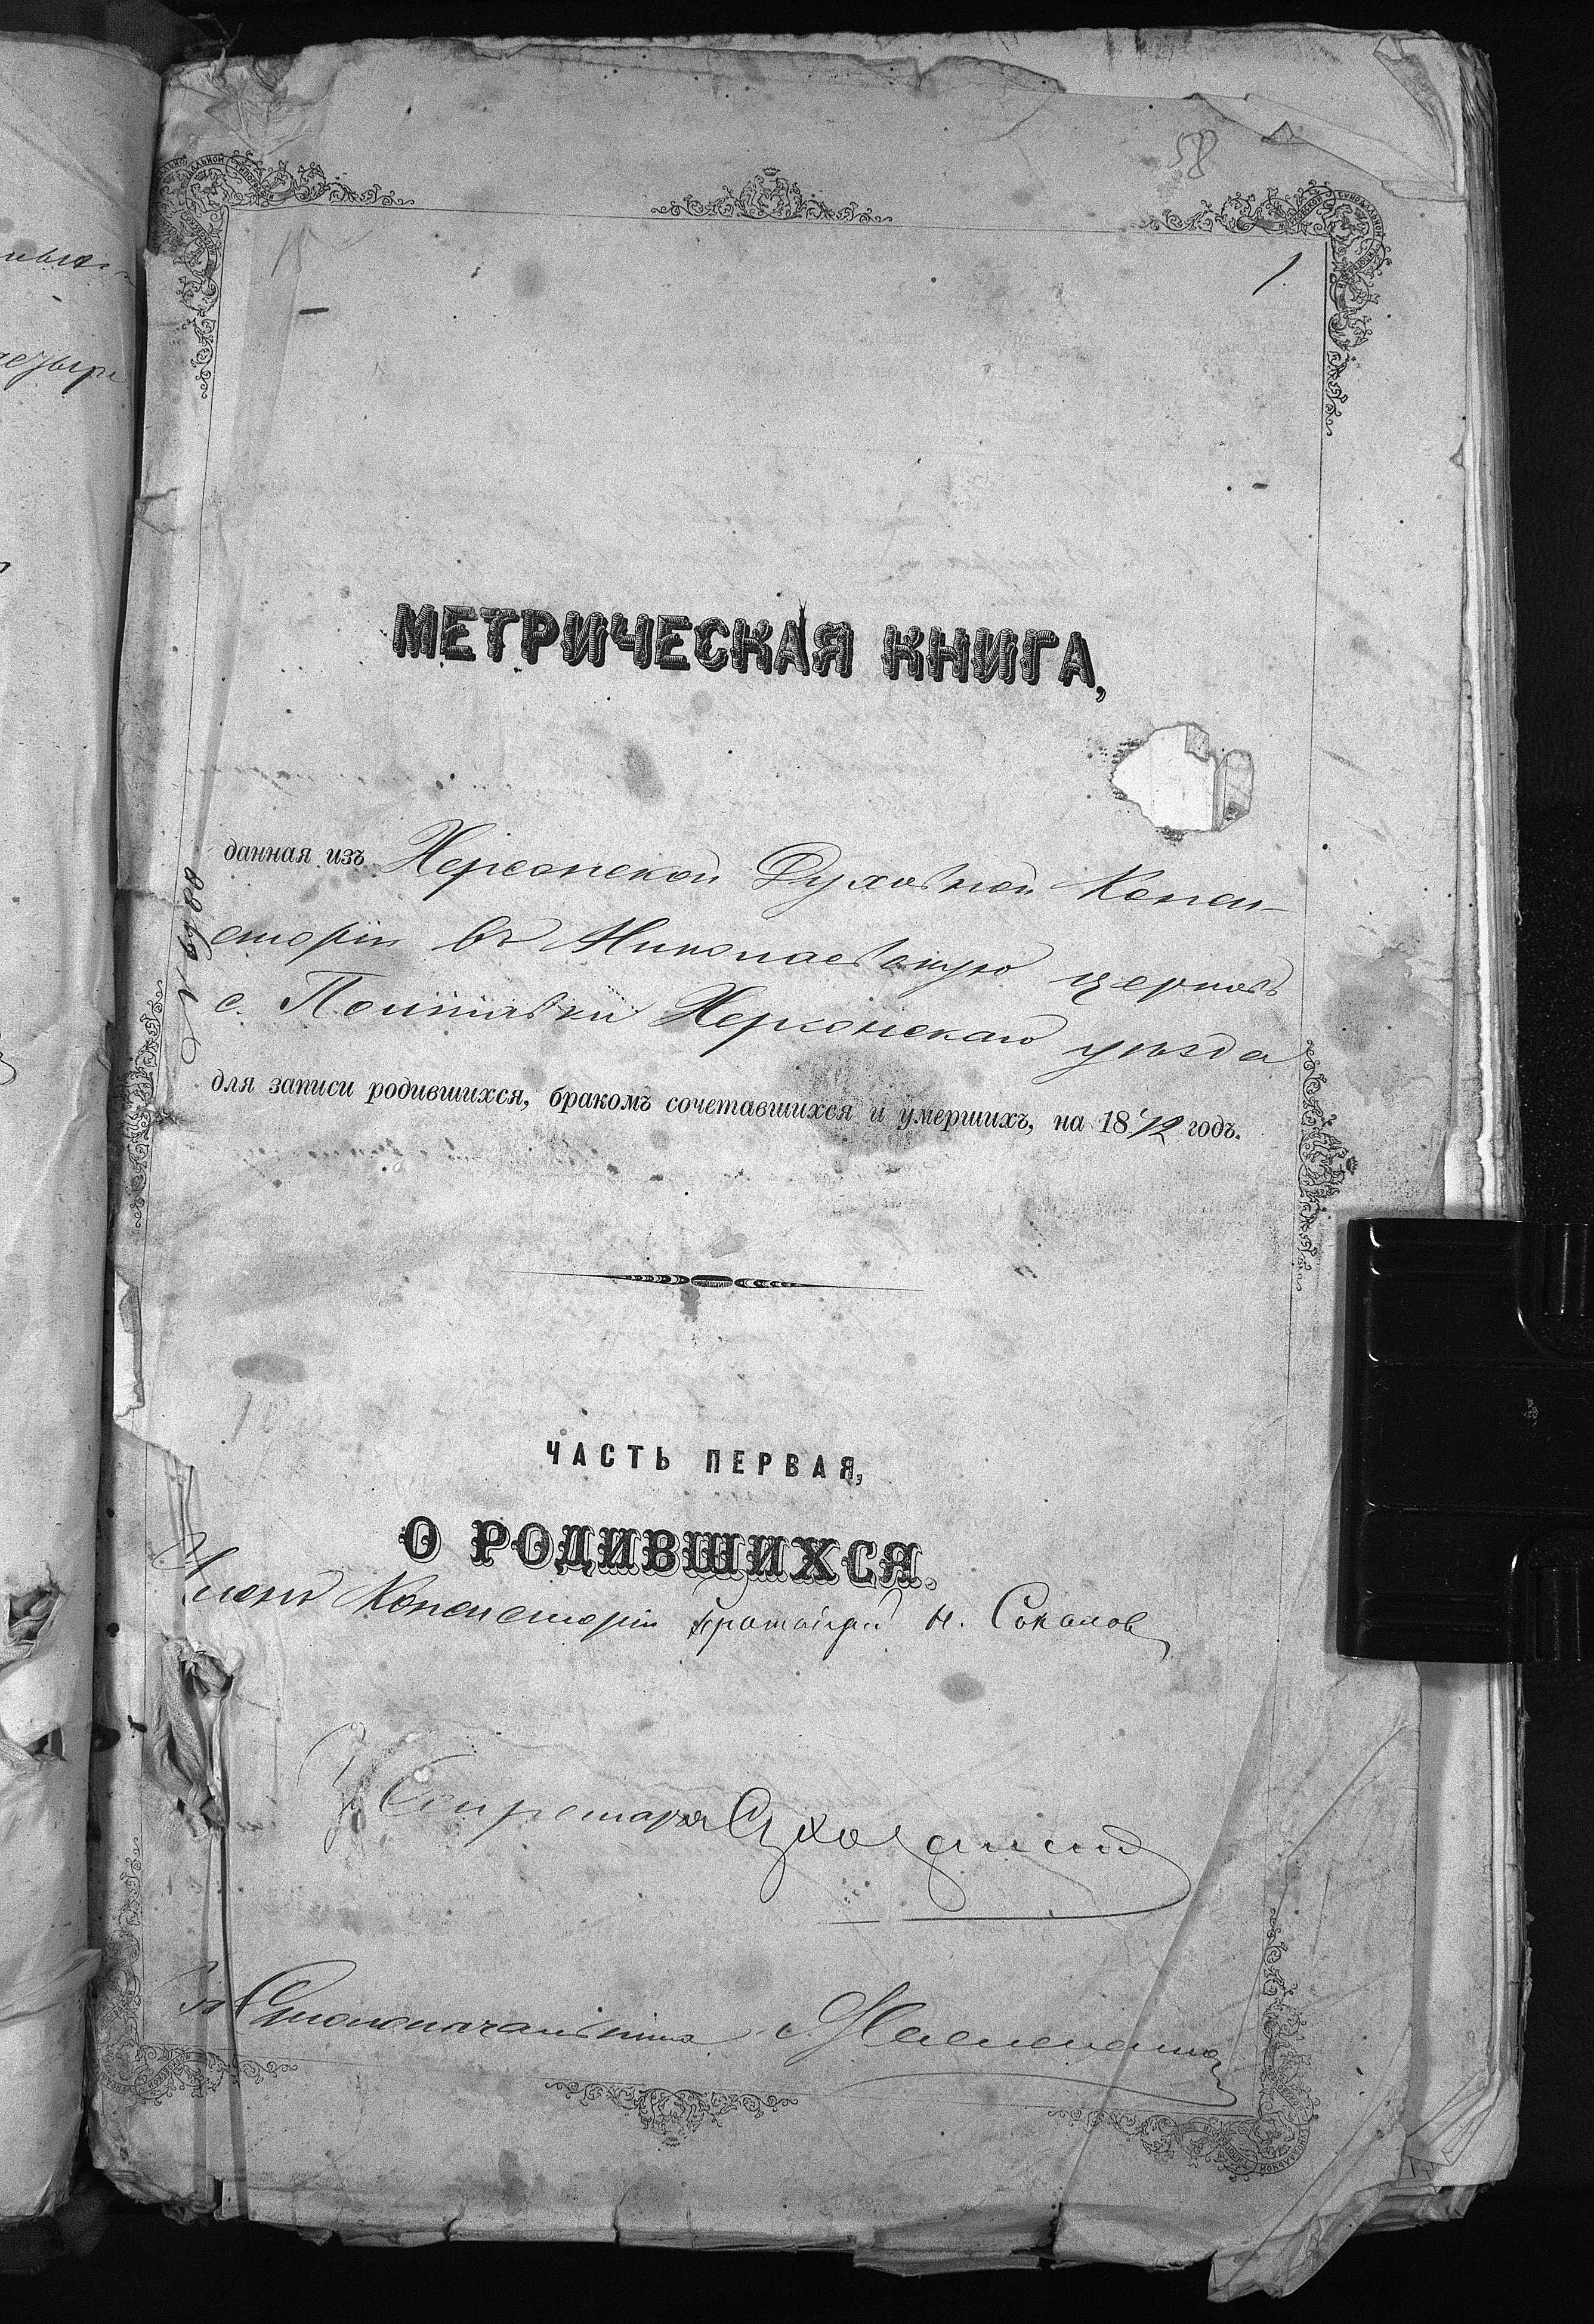 58
1.
МЕТРИЧЕСКАЯ КНИГА,
данная изъ Херсонской Духовной Конси-
сторіи въ Николаевскую церковь
с. Полтавки Херсонскаго уѣзда
для записи родившихся, бракомъ сочетавшихся и умершихъ, на 1872 годъ.
№ 6988
ЧАСТЬ ПЕРВАЯ,
О РОДИВШИХСЯ.
Членъ Консисторіи Протоіерей Н. Соколов
Секретарь
Столоначальника